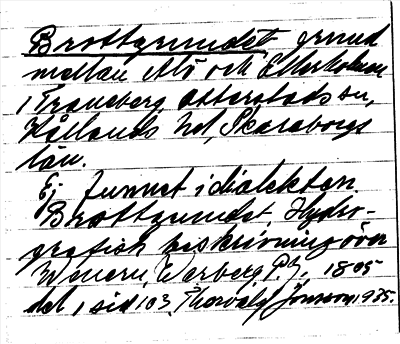 Brottgrundet, grund
mellan Alö och Ellerholmen
i Traneberg Otterstads sn,
Kållands hd, Skaraborgs
län.
Ej funnet i dialekten.
Brottgrundet, Hydro-
grafisk beskrivning över
Wenern, Warberg P. J., 1805
del 1 sid 103, Thorvald Jonsson 1935.